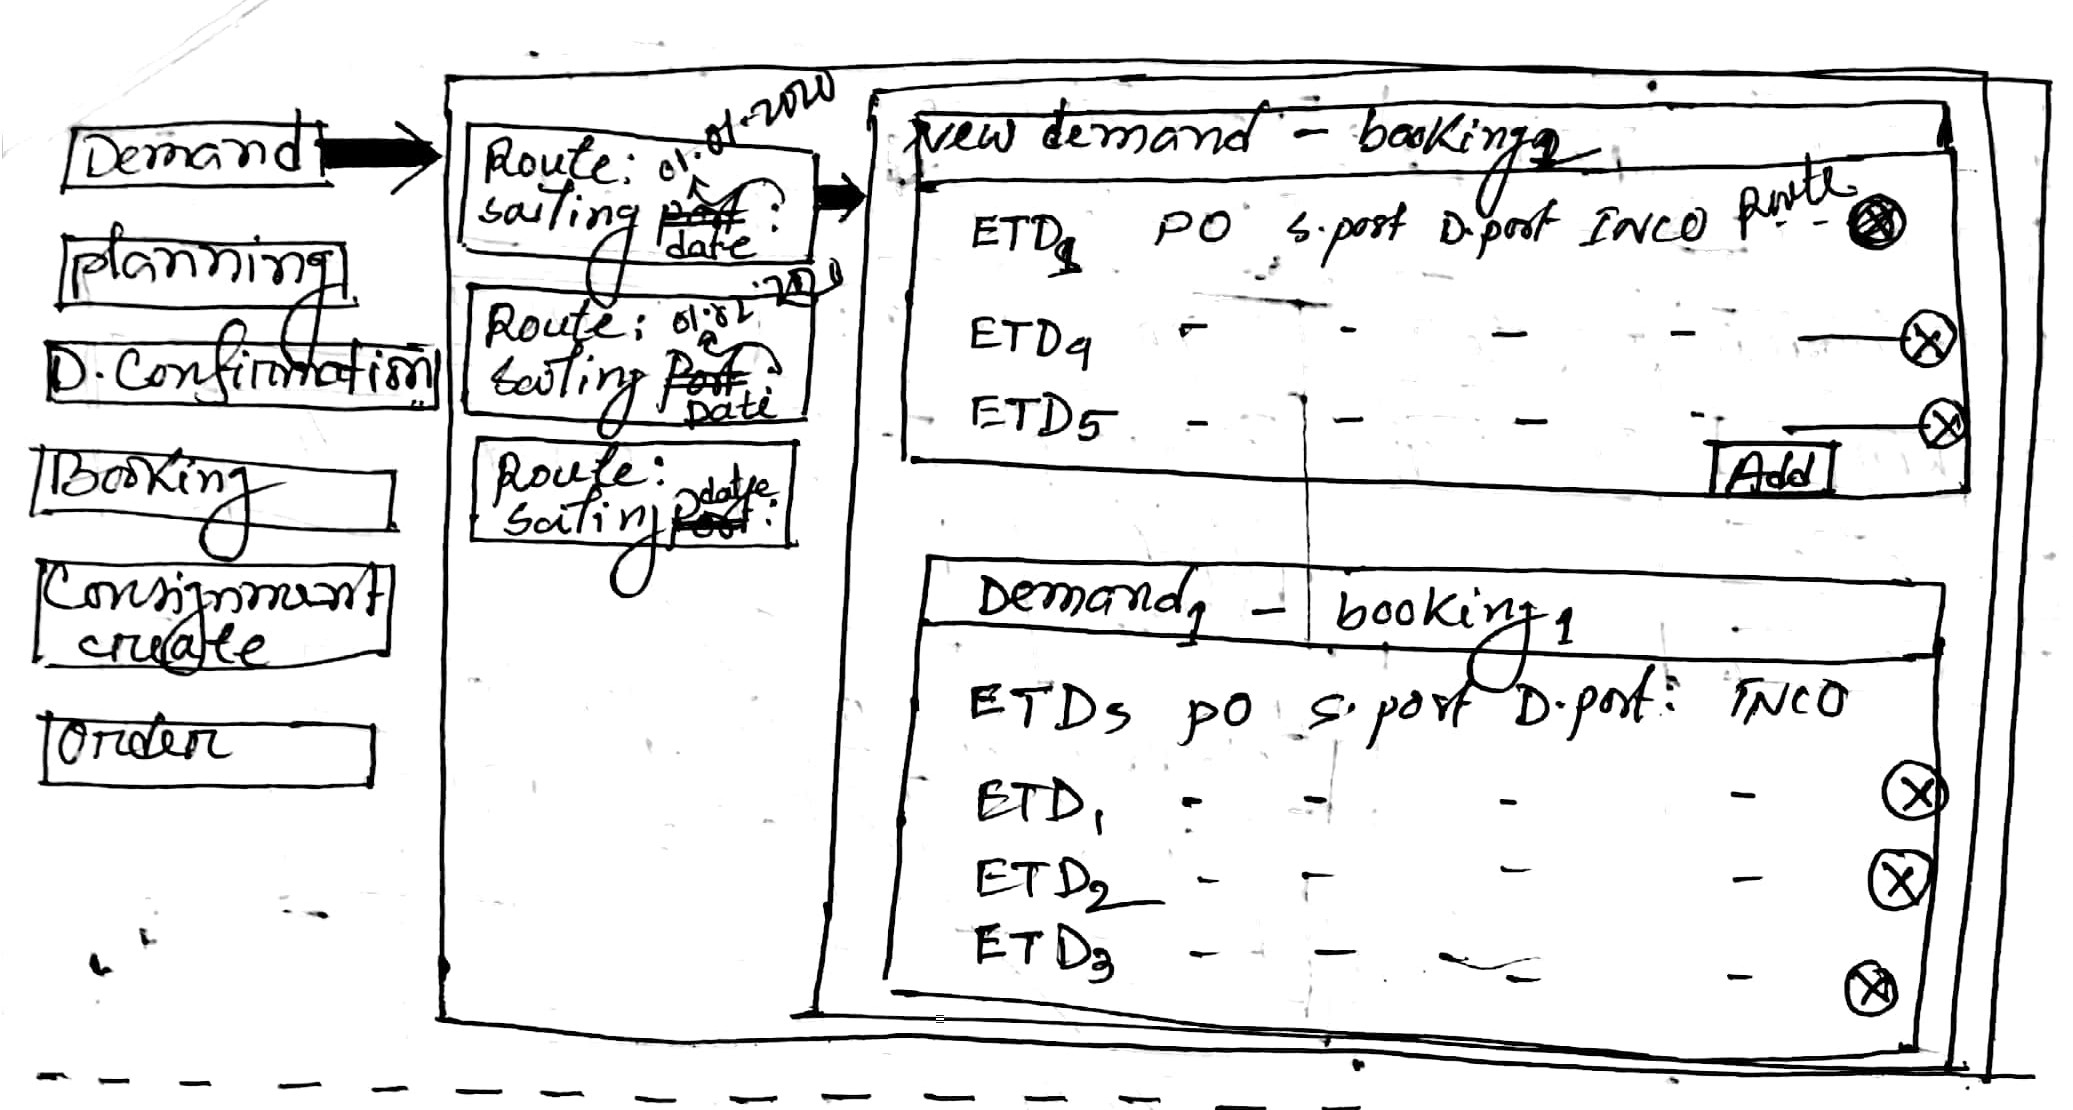 Demand
planning
D. Confirmation
Booking
Consignment
create
Order
Route: 01.01-2020
sailing port :
date
Route: 01.02
sailing Port :
Date
Route:
sailing port :
date
New demand - booking2
ETD PO S.port D.port INCO Route
ETD4 - - - -
ETD5 - - - -
Add
Demand1 - booking1
ETDs PO S.port D.port: INCO
ETD1 - - - -
ETD2 - - - -
ETD3 - - - -